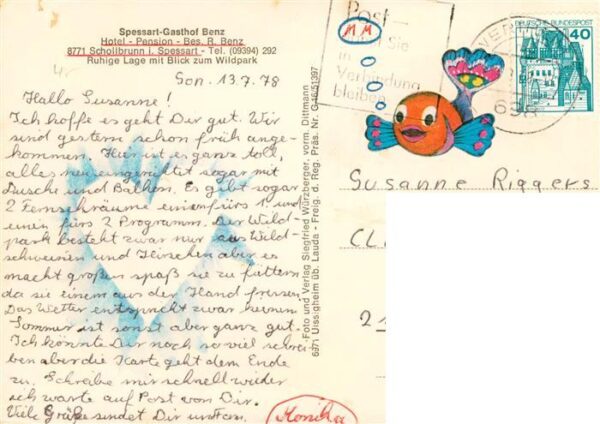 Spessart-Gasthof Benz
Hotel - Pension - Bes. R. Benz
8771 Schollbrunn i. Spessart - Tel. (09394) 292
Ruhige Lage mit Blick zum Wildpark
Son. 13.7.78
Hallo Susanne!
Ich hoffe es geht Dir gut. Wir
sind gestern schon früh ange-
kommen. Hier ist es ganz toll,
alles neu eingerichtet sogar mit
Dusche und Balkon. Es gibt sogar
2 Fernsehräume einen fürs 1. und
einen fürs 2 Programm. Der Wild-
park besteht zwar nur aus Wild-
schweinen und Hirschen aber es
macht großen spaß sie zu füttern
da sie einem aus der Hand fressen.
Das Wetter entspricht zwar keinem
Sommer ist sonst aber ganz gut.
Ich könnte Dir noch so viel schrei-
ben aber die Karte geht dem Ende
zu. Schreibe mir schnell wieder
ich warte auf Post von Dir.
Viele Grüße sendet Dir
Monika
Foto und Verlag Siegfried Würzberger, vorm. Dittmann
6971 Uissigheim üb. Lauda - Freig. d. Reg. Präs. Nr. G 16/51397
Post-
Sie
in
Verbindung
bleiben
MM
DEUTSCHE BUNDESPOST
40
Susanne Riggers
CL
2